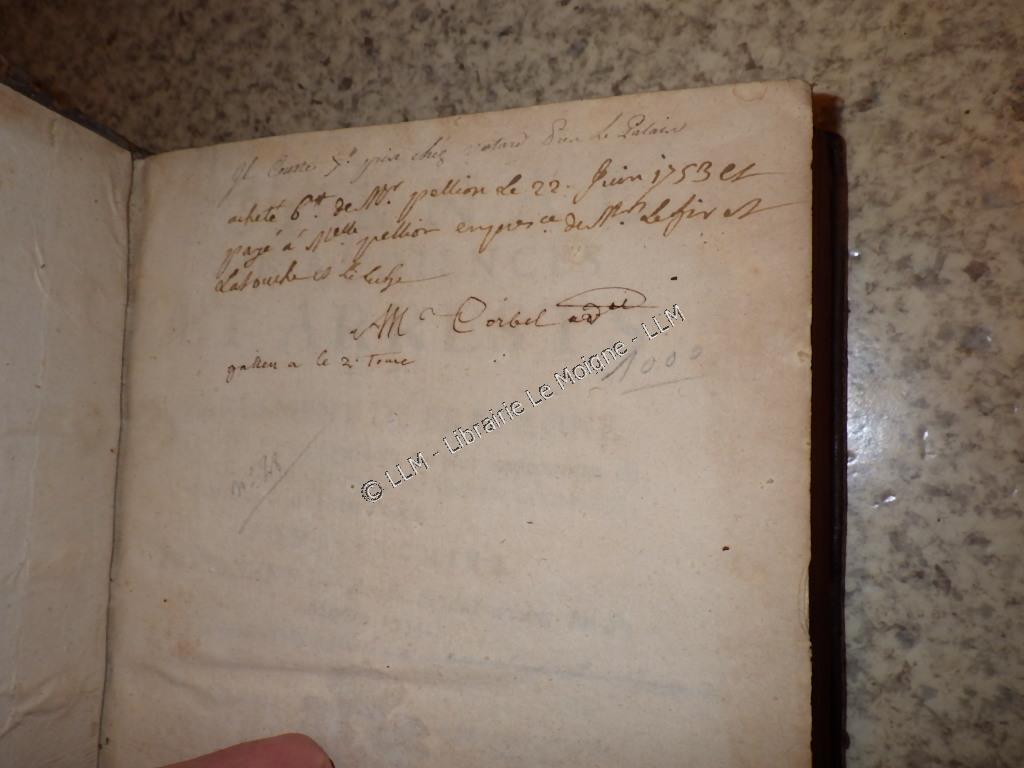 Il Coute 7# pris chez vatard Pres Le Palais
acheté 6# de Mr. pellion Le 22. Juin 1753 et
payé à Melle pellion en presce. de Mrs. Le fir et
Latouche et
Me Corbel
gallen a le 2e. Tome
1000
© LLM - Librairie Le Moigne - LLM